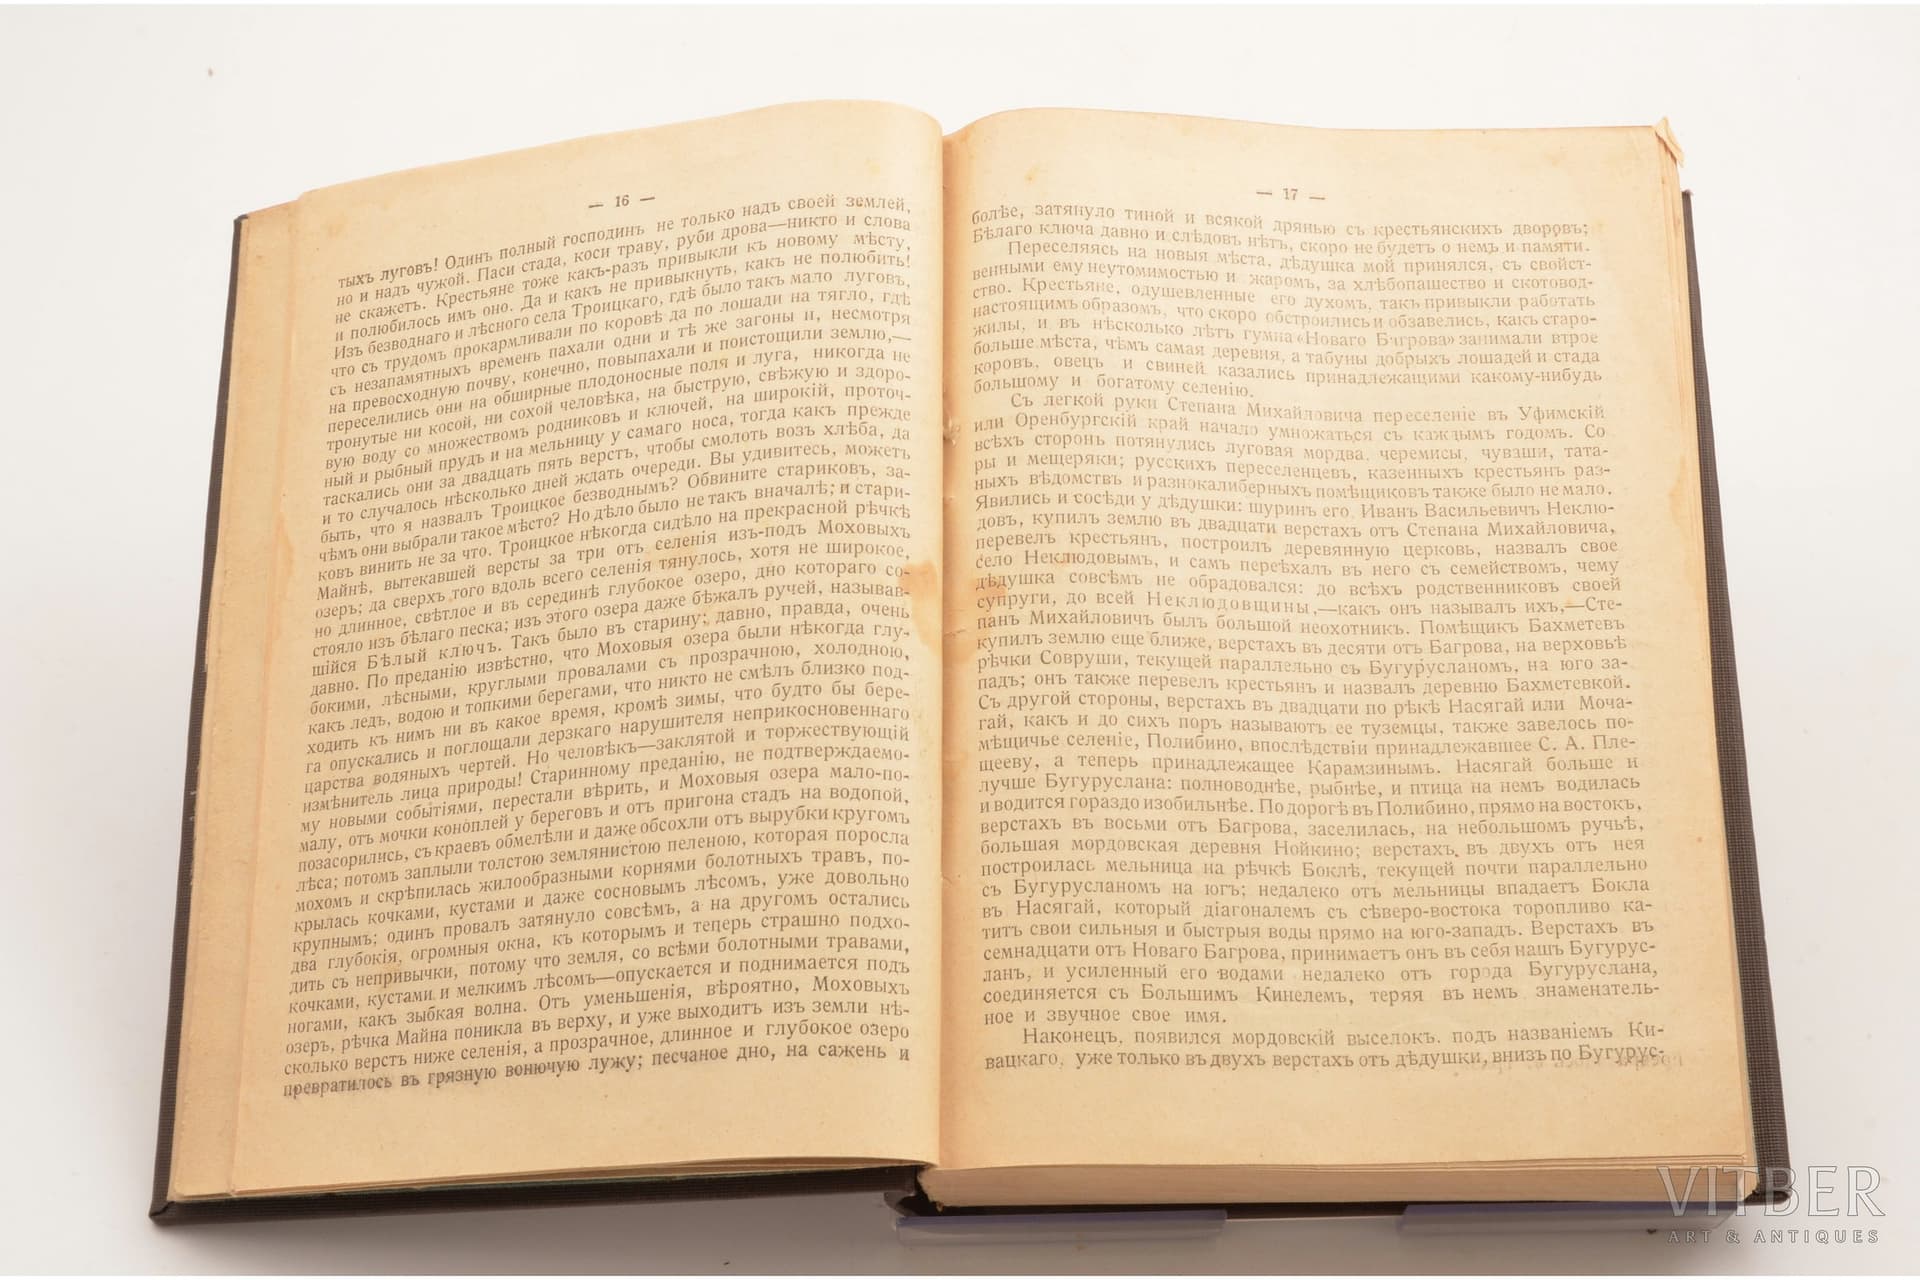 — 16 —
тыхъ луговъ! Одинъ полный господинъ не только надъ своей землей,
но и надъ чужой. Паси стада, коси траву, руби дрова—никто и слова
не скажетъ. Крестьяне тоже какъ-разъ привыкли къ новому мѣсту,
и полюбилось имъ оно. Да и какъ не привыкнуть, какъ не полюбить!
Изъ безводнаго и лѣсного села Троицкаго, гдѣ было такъ мало луговъ,
что съ трудомъ прокармливали по коровѣ да по лошади на тягло, гдѣ
съ незапамятныхъ временъ пахали одни и тѣ же загоны и, несмотря
на превосходную почву, конечно, повыпахали и поистощили землю,—
переселились они на обширные плодоносные поля и луга, никогда не
тронутые ни косой, ни сохой человѣка, на быструю, свѣжую и здоро-
вую воду со множествомъ родниковъ и ключей, на широкій, проточ-
ный и рыбный прудъ и на мельницу у самаго носа, тогда какъ прежде
таскались они за двадцать пять верстъ, чтобы смолоть возъ хлѣба, да
и то случалось нѣсколько дней ждать очереди. Вы удивитесь, можетъ
быть, что я назвалъ Троицкое безводнымъ? Обвините стариковъ, за-
чѣмъ они выбрали такое мѣсто? Но дѣло было не такъ вначалѣ; и стари-
ковъ винить не за что. Троицкое нѣкогда сидѣло на прекрасной рѣчкѣ
Майнѣ, вытекавшей версты за три отъ селенія изъ-подъ Моховыхъ
озеръ; да сверхъ того вдоль всего селенія тянулось, хотя не широкое,
но длинное, свѣтлое и въ серединѣ глубокое озеро, дно котораго со-
стояло изъ бѣлаго песка; изъ этого озера даже бѣжалъ ручей, называв-
шійся Бѣлый ключъ. Такъ было въ старину; давно, правда, очень
давно. По преданію извѣстно, что Моховыя озера были нѣкогда глу-
бокими, лѣсными, круглыми провалами съ прозрачною, холодною,
какъ ледъ, водою и топкими берегами, что никто не смѣлъ близко под-
ходить къ нимъ ни въ какое время, кромѣ зимы, что будто бы бере-
га опускались и поглощали дерзкаго нарушителя неприкосновеннаго
царства водяныхъ чертей. Но человѣкъ—заклятой и торжествующій
измѣнитель лица природы! Старинному преданію, не подтверждаемо-
му новыми событіями, перестали вѣрить, и Моховыя озера мало-по-
малу, отъ мочки коноплей у береговъ и отъ пригона стадъ на водопой,
позасорились, съ краевъ обмелѣли и даже обсохли отъ вырубки кругомъ
лѣса; потомъ заплыли толстою землянистою пеленою, которая поросла
мохомъ и скрѣпилась жилообразными корнями болотныхъ травъ, по-
крылась кочками, кустами и даже сосновымъ лѣсомъ, уже довольно
крупнымъ; одинъ провалъ затянуло совсѣмъ, а на другомъ остались
два глубокія, огромныя окна, къ которымъ и теперь страшно подхо-
дить съ непривычки, потому что земля, со всѣми болотными травами,
кочками, кустами и мелкимъ лѣсомъ—опускается и поднимается подъ
ногами, какъ зыбкая волна. Отъ уменьшенія, вѣроятно, Моховыхъ
озеръ, рѣчка Майна поникла въ верху, и уже выходитъ изъ земли нѣ-
сколько верстъ ниже селенія, а прозрачное, длинное и глубокое озеро
превратилось въ грязную вонючую лужу; песчаное дно, на сажень и
— 17 —
болѣе, затянуло тиной и всякой дрянью съ крестьянскихъ дворовъ;
Бѣлаго ключа давно и слѣдовъ нѣтъ, скоро не будетъ о немъ и памяти.
Переселяясь на новыя мѣста, дѣдушка мой принялся, съ свойст-
венными ему неутомимостью и жаромъ, за хлѣбопашество и скотовод-
ство. Крестьяне, одушевленные его духомъ, такъ привыкли работать
настоящимъ образомъ, что скоро обстроились и обзавелись, какъ старо-
жилы, и въ нѣсколько лѣтъ гумна «Новаго Багрова» занимали втрое
больше мѣста, чѣмъ самая деревня, а табуны добрыхъ лошадей и стада
коровъ, овецъ и свиней казались принадлежащими какому-нибудь
большому и богатому селенію.
Съ легкой руки Степана Михайловича переселеніе въ Уфимскій
или Оренбургскій край начало умножаться съ каждымъ годомъ. Со
всѣхъ сторонъ потянулись луговая мордва, черемисы, чуваши, тата-
ры и мещеряки; русскихъ переселенцевъ, казенныхъ крестьянъ раз-
ныхъ вѣдомствъ и разнокалиберныхъ помѣщиковъ также было не мало.
Явились и сосѣди у дѣдушки: шуринъ его, Иванъ Васильевичъ Неклю-
довъ, купилъ землю въ двадцати верстахъ отъ Степана Михайловича,
перевелъ крестьянъ, построилъ деревянную церковь, назвалъ свое
село Неклюдовымъ, и самъ переѣхалъ въ него съ семействомъ, чему
дѣдушка совсѣмъ не обрадовался: до всѣхъ родственниковъ своей
супруги, до всей Неклюдовщины,—какъ онъ называлъ ихъ,—Сте-
панъ Михайловичъ былъ большой неохотникъ. Помѣщикъ Бахметевъ
купилъ землю еще ближе, верстахъ въ десяти отъ Багрова, на верховьѣ
рѣчки Совруши, текущей параллельно съ Бугурусланомъ, на юго за-
падъ; онъ также перевелъ крестьянъ и назвалъ деревню Бахметевкой.
Съ другой стороны, верстахъ въ двадцати по рѣкѣ Насягай или Моча-
гай, какъ и до сихъ поръ называютъ ее туземцы, также завелось по-
мѣщичье селеніе, Полибино, впослѣдствіи принадлежавшее С. А. Пле-
щееву, а теперь принадлежащее Карамзинымъ. Насягай больше и
лучше Бугуруслана: полноводнѣе, рыбнѣе, и птица на немъ водилась
и водится гораздо изобильнѣе. По дорогѣ въ Полибино, прямо на востокъ,
верстахъ въ восьми отъ Багрова, заселилась, на небольшомъ ручьѣ,
большая мордовская деревня Нойкино; верстахъ въ двухъ отъ нея
построилась мельница на рѣчкѣ Боклѣ, текущей почти параллельно
съ Бугурусланомъ на югъ; недалеко отъ мельницы впадаетъ Бокла
въ Насягай, который діагоналемъ съ сѣверо-востока торопливо ка-
титъ свои сильныя и быстрыя воды прямо на юго-западъ. Верстахъ въ
семнадцати отъ Новаго Багрова, принимаетъ онъ въ себя нашъ Бугурус-
ланъ, и усиленный его водами недалеко отъ города Бугуруслана,
соединяется съ Большимъ Кинелемъ, теряя въ немъ знаменатель-
ное и звучное свое имя.
Наконецъ, появился мордовскій выселокъ, подъ названіемъ Ки-
вацкаго, уже только въ двухъ верстахъ отъ дѣдушки, внизъ по Бугурус-
VITBER
ART & ANTIQUES